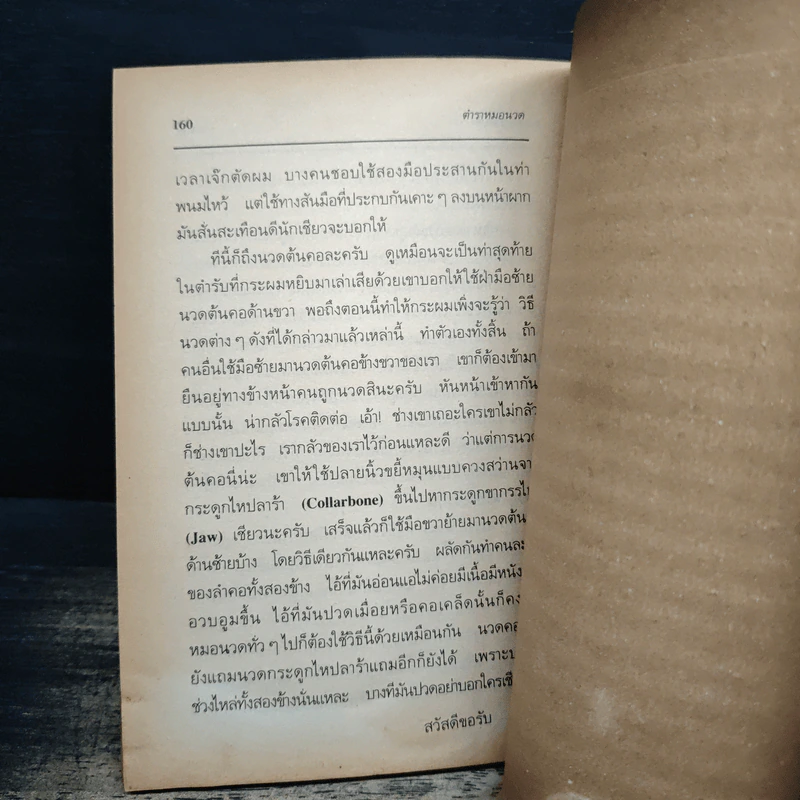 160 ตำราหมอนวด
เวลาเจ๊กตัดผม บางคนชอบใช้สองมือประสานกันในท่า
พนมไหว้ แต่ใช้ทางสันมือที่ประกบกันเคาะ ๆ ลงบนหน้าผาก
มันสั่นสะเทือนดีนักเชียวจะบอกให้
ทีนี้ก็ถึงนวดต้นคอละครับ ดูเหมือนจะเป็นท่าสุดท้าย
ในตำรับที่กระผมหยิบมาเล่าเสียด้วยเขาบอกให้ใช้ฝ่ามือซ้าย
นวดต้นคอด้านขวา พอถึงตอนนี้ทำให้กระผมเพิ่งจะรู้ว่า วิธี
นวดต่าง ๆ ดังที่ได้กล่าวมาแล้วเหล่านี้ ทำตัวเองทั้งสิ้น ถ้า
คนอื่นใช้มือซ้ายมานวดต้นคอข้างขวาของเรา เขาก็ต้องเข้ามา
ยืนอยู่ทางข้างหน้าคนถูกนวดสินะครับ หันหน้าเข้าหากัน
แบบนั้น น่ากลัวโรคติดต่อ เอ้า! ช่างเขาเถอะใครเขาไม่กลัว
ก็ช่างเขาปะไร เรากลัวของเราไว้ก่อนแหละดี ว่าแต่การนวด
ต้นคอนี่น่ะ เขาให้ใช้ปลายนิ้วขยี้หมุนแบบควงสว่านจาก
กระดูกไหปลาร้า (Collarbone) ขึ้นไปหากระดูกขากรรไกร
(Jaw) เชียวนะครับ เสร็จแล้วก็ใช้มือขวาย้ายมานวดต้น
ด้านซ้ายบ้าง โดยวิธีเดียวกันแหละครับ ผลัดกันทำคนละ
ของลำคอทั้งสองข้าง ไอ้ที่มันอ่อนแอไม่ค่อยมีเนื้อมีหนัง
อวบอูมขึ้น ไอ้ที่มันปวดเมื่อยหรือคอเคล็ดนั้นก็คง
หมอนวดทั่ว ๆ ไปก็ต้องใช้วิธีนี้ด้วยเหมือนกัน นวดคอ
ยังแถมนวดกระดูกไหปลาร้าแถมอีกก็ยังได้ เพราะ
ช่วงไหล่ทั้งสองข้างนั่นแหละ บางทีมันปวดอย่าบอกใคร
สวัสดีขอรับ